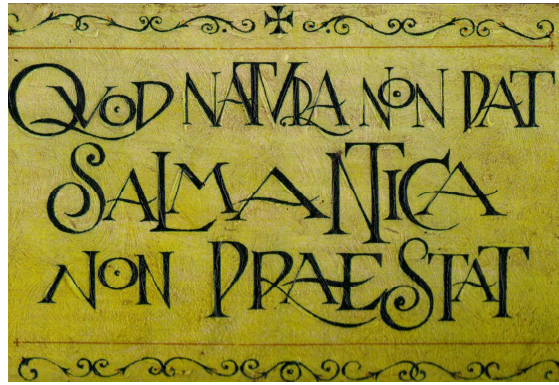 QVOD NATVRA NON DAT
SALMANTICA
NON PRAESTAT